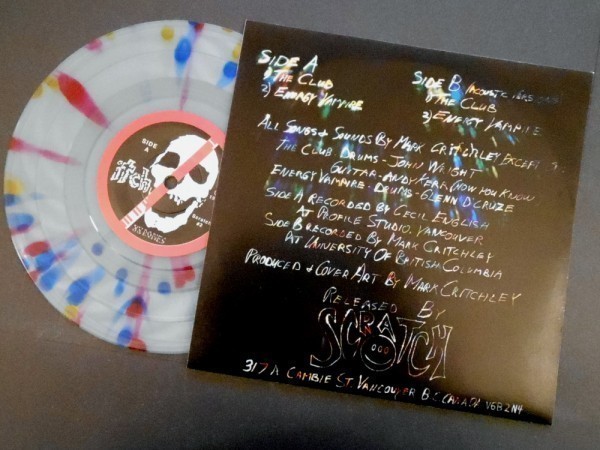 SIDE A
1) THE CLUB
2) ENERGY VAMPIRE
SIDE B (ACOUSTIC VERSIONS)
1) THE CLUB
2) ENERGY VAMPIRE
ALL SONGS + SOUNDS BY MARK CRITCHLEY EXCEPT
THE CLUB - DRUMS - JOHN WRIGHT
GUITAR - ANDY KERR NOW YOU KNOW
ENERGY VAMPIRE - DRUMS - GLENN D'CRUZE
SIDE A RECORDED BY CECIL ENGLISH
AT PROFILE STUDIO, VANCOUVER
SIDE B RECORDED BY MARK CRITCHLEY
AT UNIVERSITY OF BRITISH COLUMBIA
PRODUCED + COVER ART BY MARK CRITCHLEY
RELEASED BY
SCRATCH
317A CAMBIE ST. VANCOUVER B.C. CANADA V6B 2N4
SIDE
A
itch